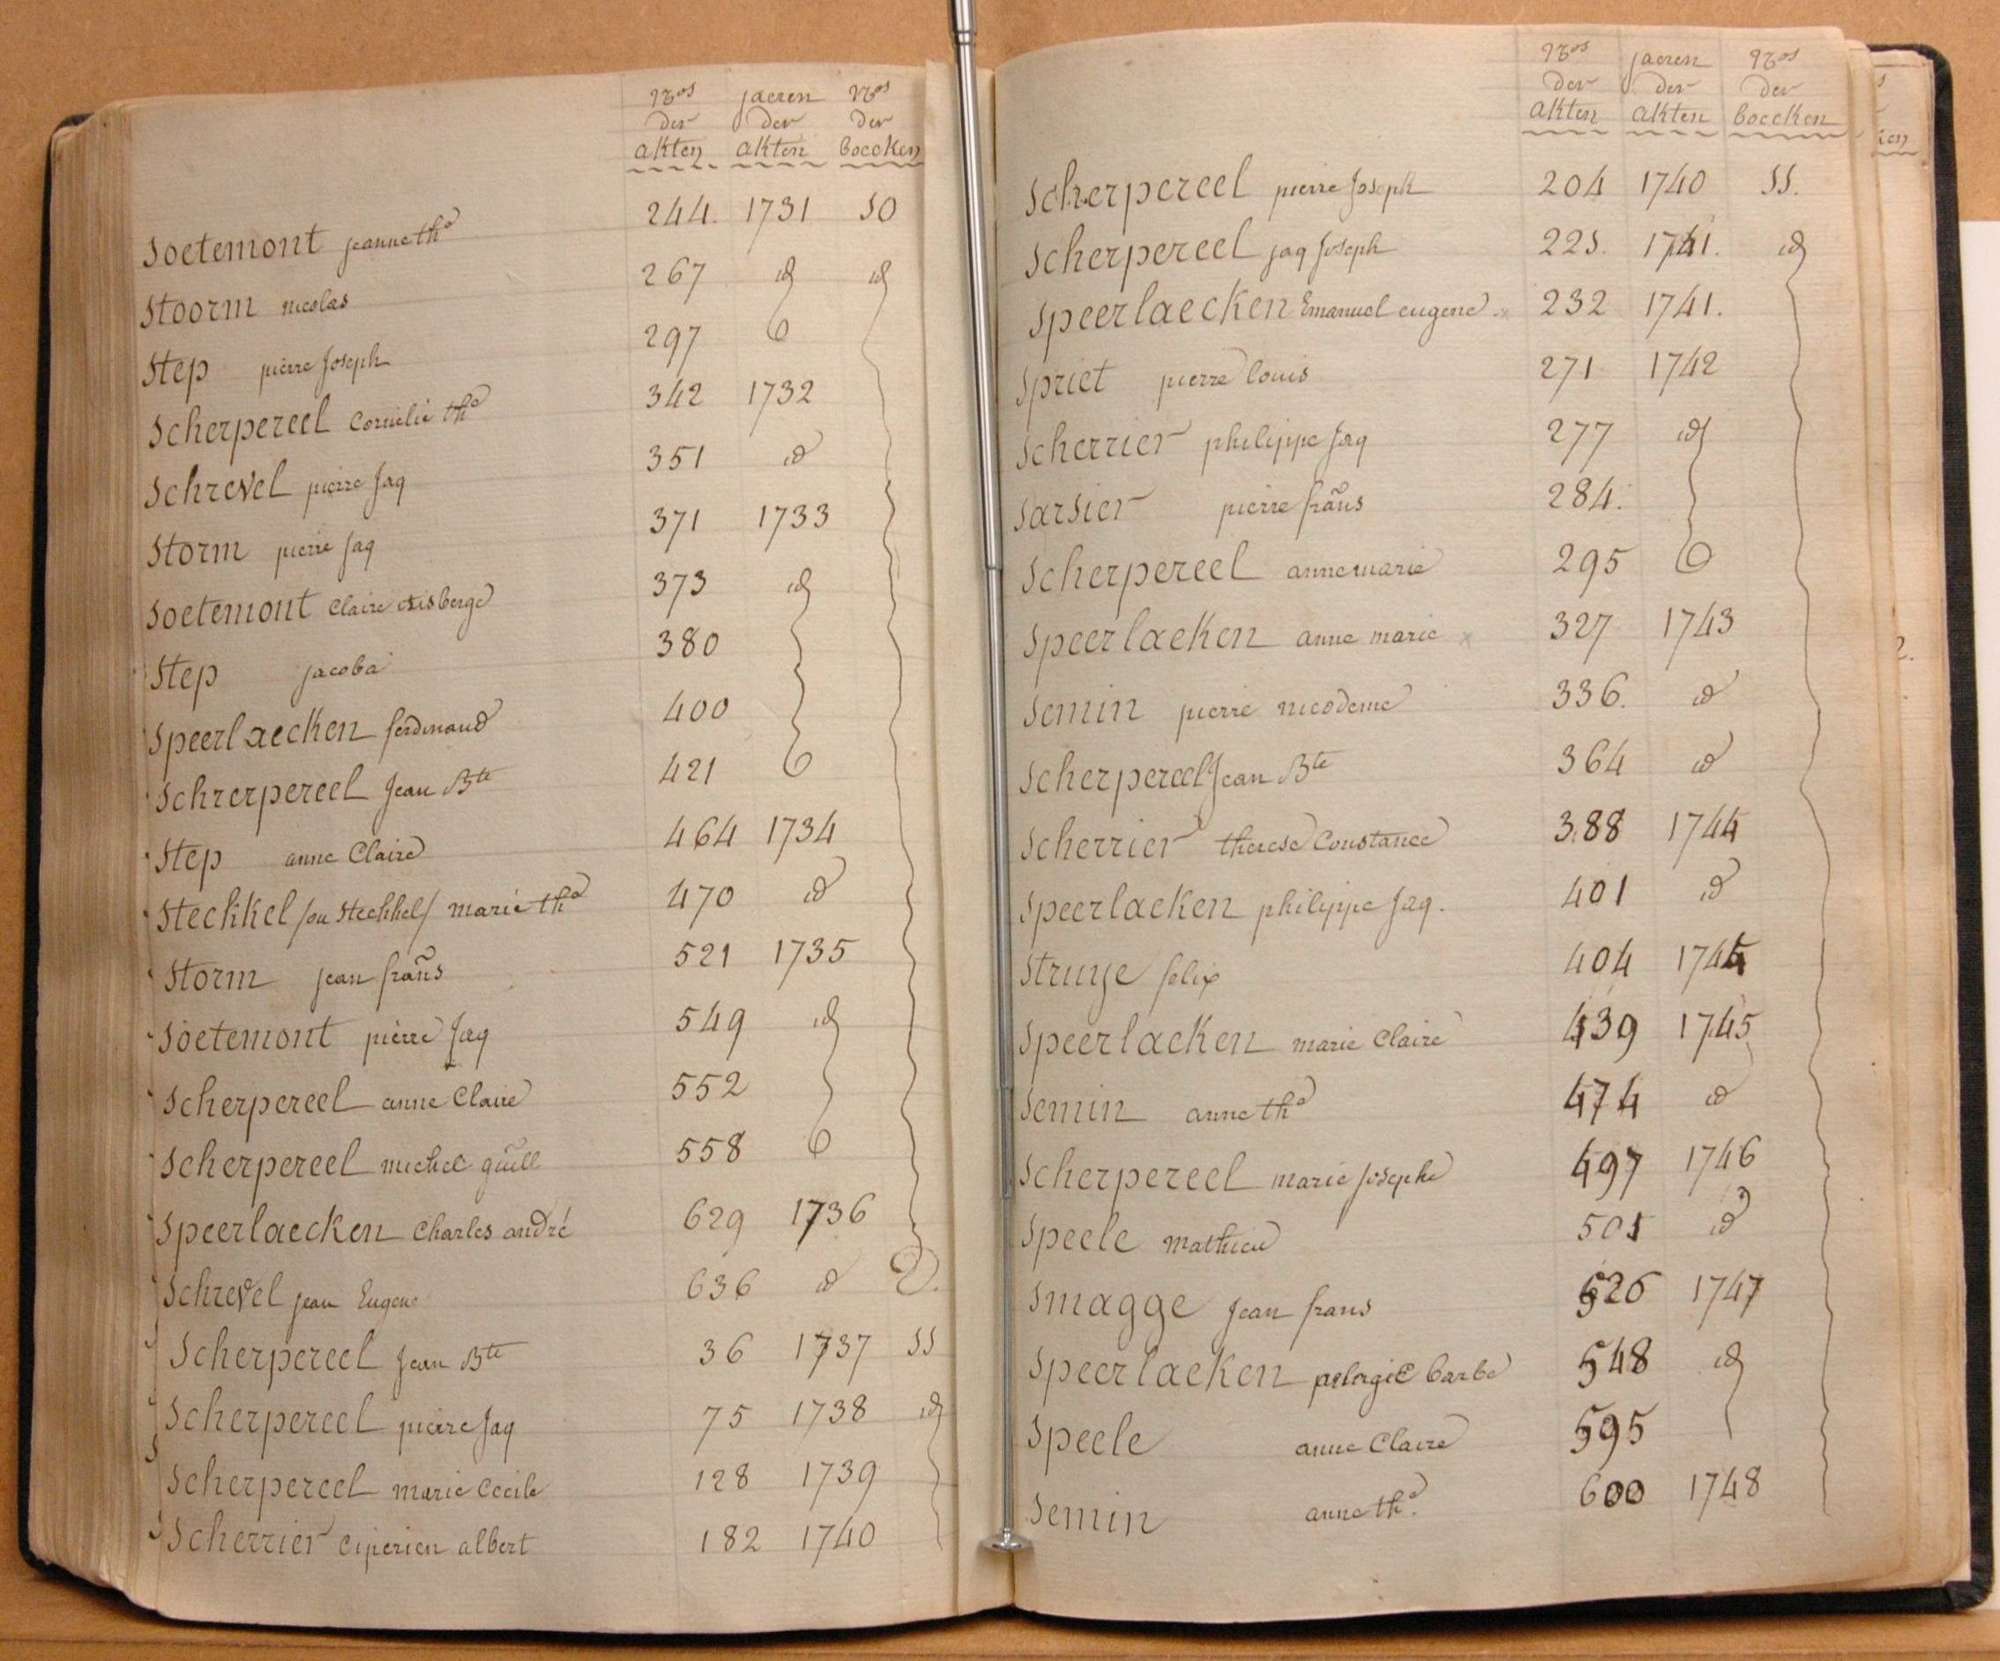 Nros jaeren Nros
der der der
akten akten boecken
Soetemont jeanne the 244. 1731 50
Stoorm nicolas 267 id id
Step pierre Joseph 297
Scherpereel Cornelie the 342 1732
Schrevel pierre Jaq 351 id
Storm pierre Jaq 371 1733
Soetemont Claire 373 id
Step jacoba 380
Speerlaecken ferdinand 400
Schrerpereel Jean Bte 421
Step anne Claire 464 1734
Steckkel /ou Stechhel/ marie the 470 id
Storm jean frans 521 1735
Soetemont pierre Jaq 549 id
Scherpereel anne Claire 552
Scherpereel michel guill 558
Speerlaecken Charles andré 629 1736
Schrevel jean Eugene 636 id
Scherpereel Jean Bte 36 1737 55
Scherpereel pierre Jaq 75 1738 id
Scherpereel marie Cecile 128 1739
Scherrier Ciperien albert 182 1740
Nros jaeren Nros
der der der
akten akten boecken
Scherpereel pierre Joseph 204 1740 55.
Scherpereel jaq Joseph 225. 1741. id
Speerlaecken Emanuel eugene 232 1741.
Spriet pierre louis 271 1742
Scherrier philippe Jaq 277 id
Sarsier pierre frans 284.
Scherpereel anne marie 295
Speerlaeken anne marie x 327 1743
Semin pierre nicodeme 336. id
Scherpereel Jean Bte 364 id
Scherrier therese Constance 388 1744
Speerlaeken philippe Jaq. 401 id
Struye felix 404 1745
Speerlaeken marie Claire 439 1745
Semin anne the 474 id
Scherpereel marie Josephe 497 1746
Speele mathieu 505 id
Smagge Jean frans 526 1747
Speerlaeken pelagie barbe 548 id
Speele anne Claire 595
Semin anne the. 600 1748